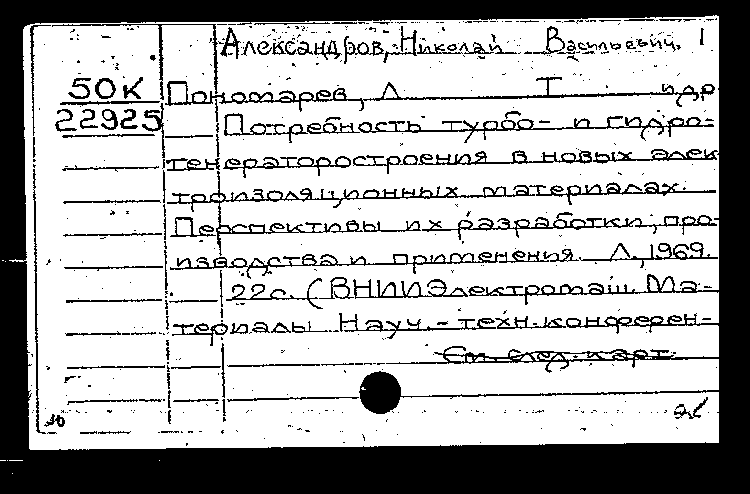 Александров, Николай Васильевич. 1
50К
22925
Пономарев, Л Т и др
Потребность турбо- и гидро-
генераторостроения в новых элек
троизоляционных материалах.
Перспективы их разработки, про-
изводства и применения. Л., 1969.
22с. (ВНИИЭлектромаш. Ма-
териалы Науч.-техн. конферен-
См след. карт.